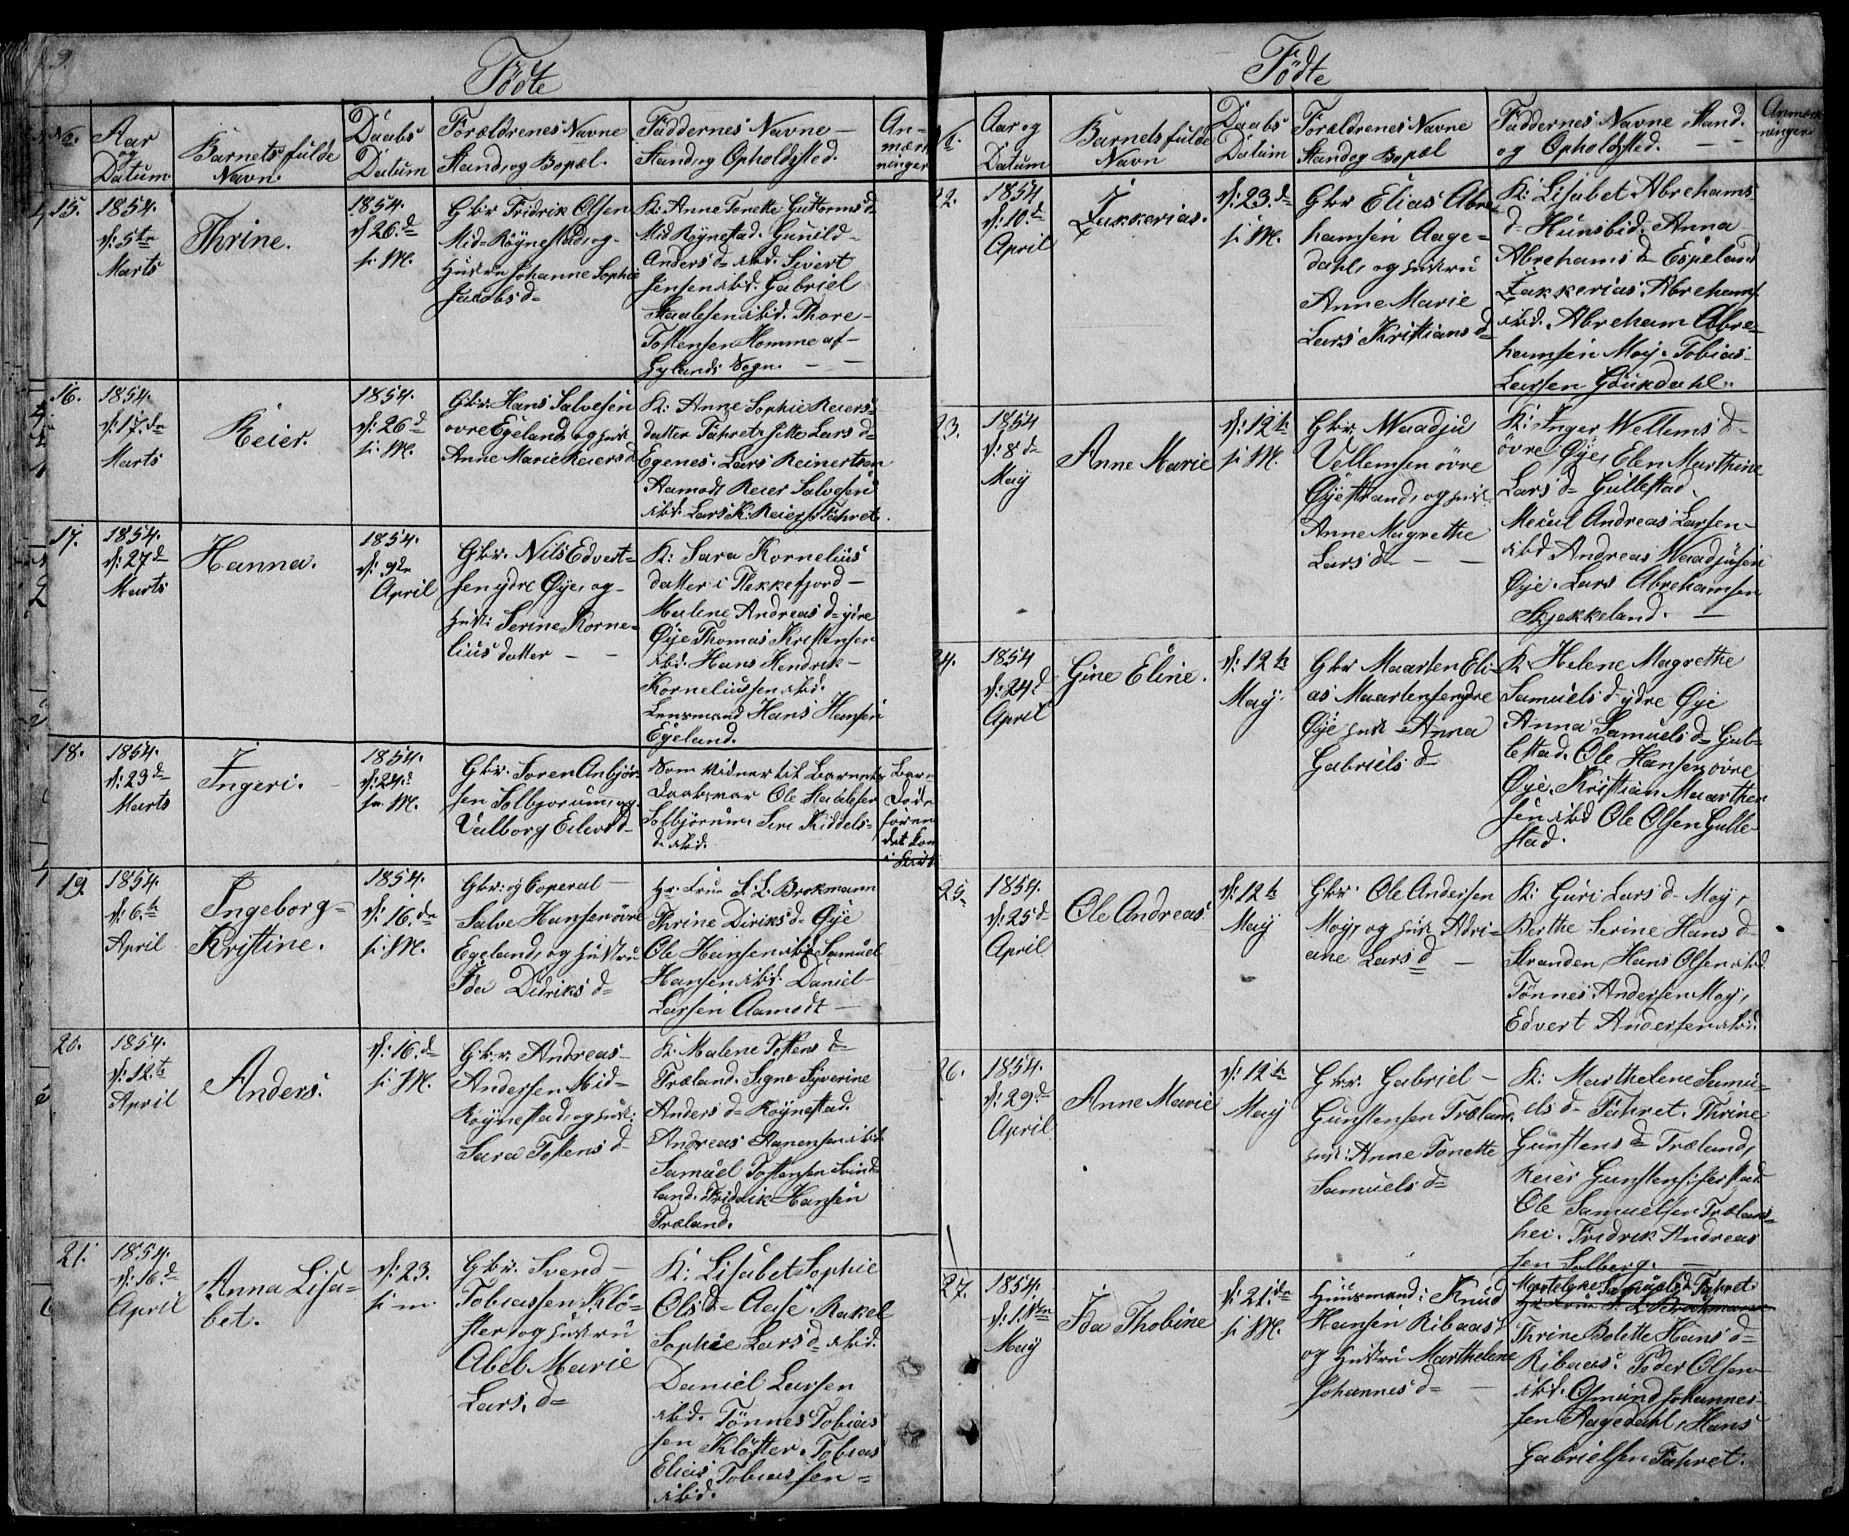 9.
Födte
No.
Aar
og
Datum.
Barnets fulde
Navn.
Daabs
Datum
Forældrenes Navne
Stand, og Bopæl.
Faddernes Navne —
Stand, og Opholdssted.
An-
mærk
ninger
15.
1854.
d: 5te
Marts
Thrine.
1854.
d 26.de
i M.
Gbr Fridrik Olsen
Mid-Röynestad, og-
Hustru Johanne Sophie
Jacobs d=
K: Anne Tonette Guttorms d=
Mid Röynestad. Gunild-
Anders d= ibd. Sivert
Jensen ibd. Gabriel
Staalesen ibd. Thore-
Tostensen Homme af-
Gylands Sogn. — —
16.
1854.
d: 17. de
Marts
Reier.
1854.
d: 26 d
i M.
Gbr: Hans Salvesen
ovre Egeland, og hust
Anne Marie Reiers d
K: Anne Sophie Reiers-
datter Fahret, Jette Lars d=
Egenes. Lars Reinertsen
Aamodt Reier Salvesen
ibd. Lars K. Reiers. Fahret.
17.
1854.
d: 27 d
Marts
Hanna.
1854.
d: 9de
April
Gbr. Nils Edvert-
sen ydre Øye, og-
hust: Serine Korne-
lius datter — —
K: Sara Kornelius
datter i Flekkefjord —
Malene Andreas d= ydre
Øye Thomas Kristensen
ibd. Hans Hendrik-
Korneliussen ibd.
Lensmand Hans Hansen
Egeland.
18.
1854.
d: 23 de
Marts
Ingeri.
1854.
d: 24. d
i M.
Gbr. Soren Anbjör-
sen Solbjorum, og
Valborg Eilerts d-
Som Vidner til Barnets
Daab, var Ole Staalesen
Solbjörum Siri Kiddels-
d. ibd.
Bar-
Döde
förend
det kom
i Kirk
19.
1854.
d: 6. te
April
Ingeborg-
Kristine.
1854.
d: 16. de
i M.
Gbr: og Coperal —
Salve Hansen övre
Egeland, og hustru
Ida Didriks d=
Hr. Frue S. L. Brokmann
Thrine Diriks d= Øye
Ole Hansen ibd Samuel
Hansen ibd. Daniel-
Larsen Aamodt —
20.
1854.
d: 12. te
April
Anders.
d: 16. de
i M.
Gbr. Andreas-
Andersen Mid-
Röynestad, og hust:
Sara Tostens d
K: Malene Tostens d=
Træland. Signe Syverine
Anders d= Röynestad.
Andreas Hanensen ibd
Samuel Tostensen Svind
land. Fridrik Hansen
Træland.
21.
1854.
d: 16. d
April
Anna Lisa-
bet.
d: 23.
i m.
Gbr: Svend-
Tobiassen Klö-
ster, og hustru
Abeb Marie
Lars, d=
K: Lisabet Sophie
Ols d= Aase. Rakel
Sophie Lars d= ibd.
Daniel Larsen
ibd. Tönnes Tobias
sen Klöster. Tobias
Elias Tobiassen-
ibd.
Födte
N.
Aar og
Datum
Barnets fulde
Navn
Daabs
Datum
Forældrenes Navne
Stand og Bopæl
Faddernes Navne Stand.
og Opholdssted. — —
Anmærk
ninger
22.
1854
d: 10. d
April
Zakkerias.
d: 23. de
i M.
Gbr Elias Abre-
hamsen Aage-
dahl, og hustru
Anne Marie
Lars Kristians d=
K: Lisabet Abrehams
d- Hunsbid. Anna
Abrehams d= Espeland
Zakkerias Abrehams
ibd. Abreham Abre-
hamsen Moy. Tobias-
Larsen Göukdahl.
23.
1854
d: 8 de
May
Anne Marie
d: 12te
i M.
Gbr Naadju
Vellemsen övre
Øyestrand, og hust
Anne Magrethe
Lars d= — —
K: Inger Wellems d-
övre Øye, Elen Marthine
Lars d= Gullestad.
Mecul Andreas Larsen
ibd Andreas Naadjusen
Øye. Lars Abrehamsen
Skjekkeland. —
24.
1854
d: 24. d
April
Gine Eline.
d: 12te
May
Gbr Maarten Eli-
as Maartensen ydre
Øye hust Anna
Gabriels d=
K: Helene Magrethe
Samuels d- ydre Øye
Anna Samuels d= Gul-
lestad. Ole Hansen övre
Øye. Kristian Maarthen
sen ibd Ole Olsen Gulle-
stad.
25.
1854.
d: 25 d
April
Ole Andreas
d: 12te
May
Gbr Ole Andersen
Moy, og hust Adri-
ane Lars d —
K: Guri Lars d- Moy,
Berthe Serine Hans d=
Stranden, Hans Olsen ibd.
Tönnes Andersen Moy,
Edvert Andersen ibd.
26.
1854.
d: 29. de
April
Anne Marie
d: 12te
May
Gbr. Gabriel-
Gunstensen Træland.
hust: Anne Tonette
Samuels d=
K: Marthelene Samu-
els d- Fahret. Thrine
Gunstens d= Træland,
Reier Gunstens. Ferstad
Ole Samuelsen Trælans-
hei. Fridrik Andreas
sen Solberg.
27.
1854.
d: 1. ten
May
Ida Thobine
d: 21. de
i M.
Huusmand: Knud
Hansen Ribaas,
og Hustru Marthelene
Johannes d= —
Martelene Samuels d. Fahret
Hr. Frue S. L. Brokmann
Thrine Bolette Hans d=
Ribaas. Peder Olsen
ibd. Osmund Johannes-
sen Aagedahl, Hans
Gabrielsen Fahret.